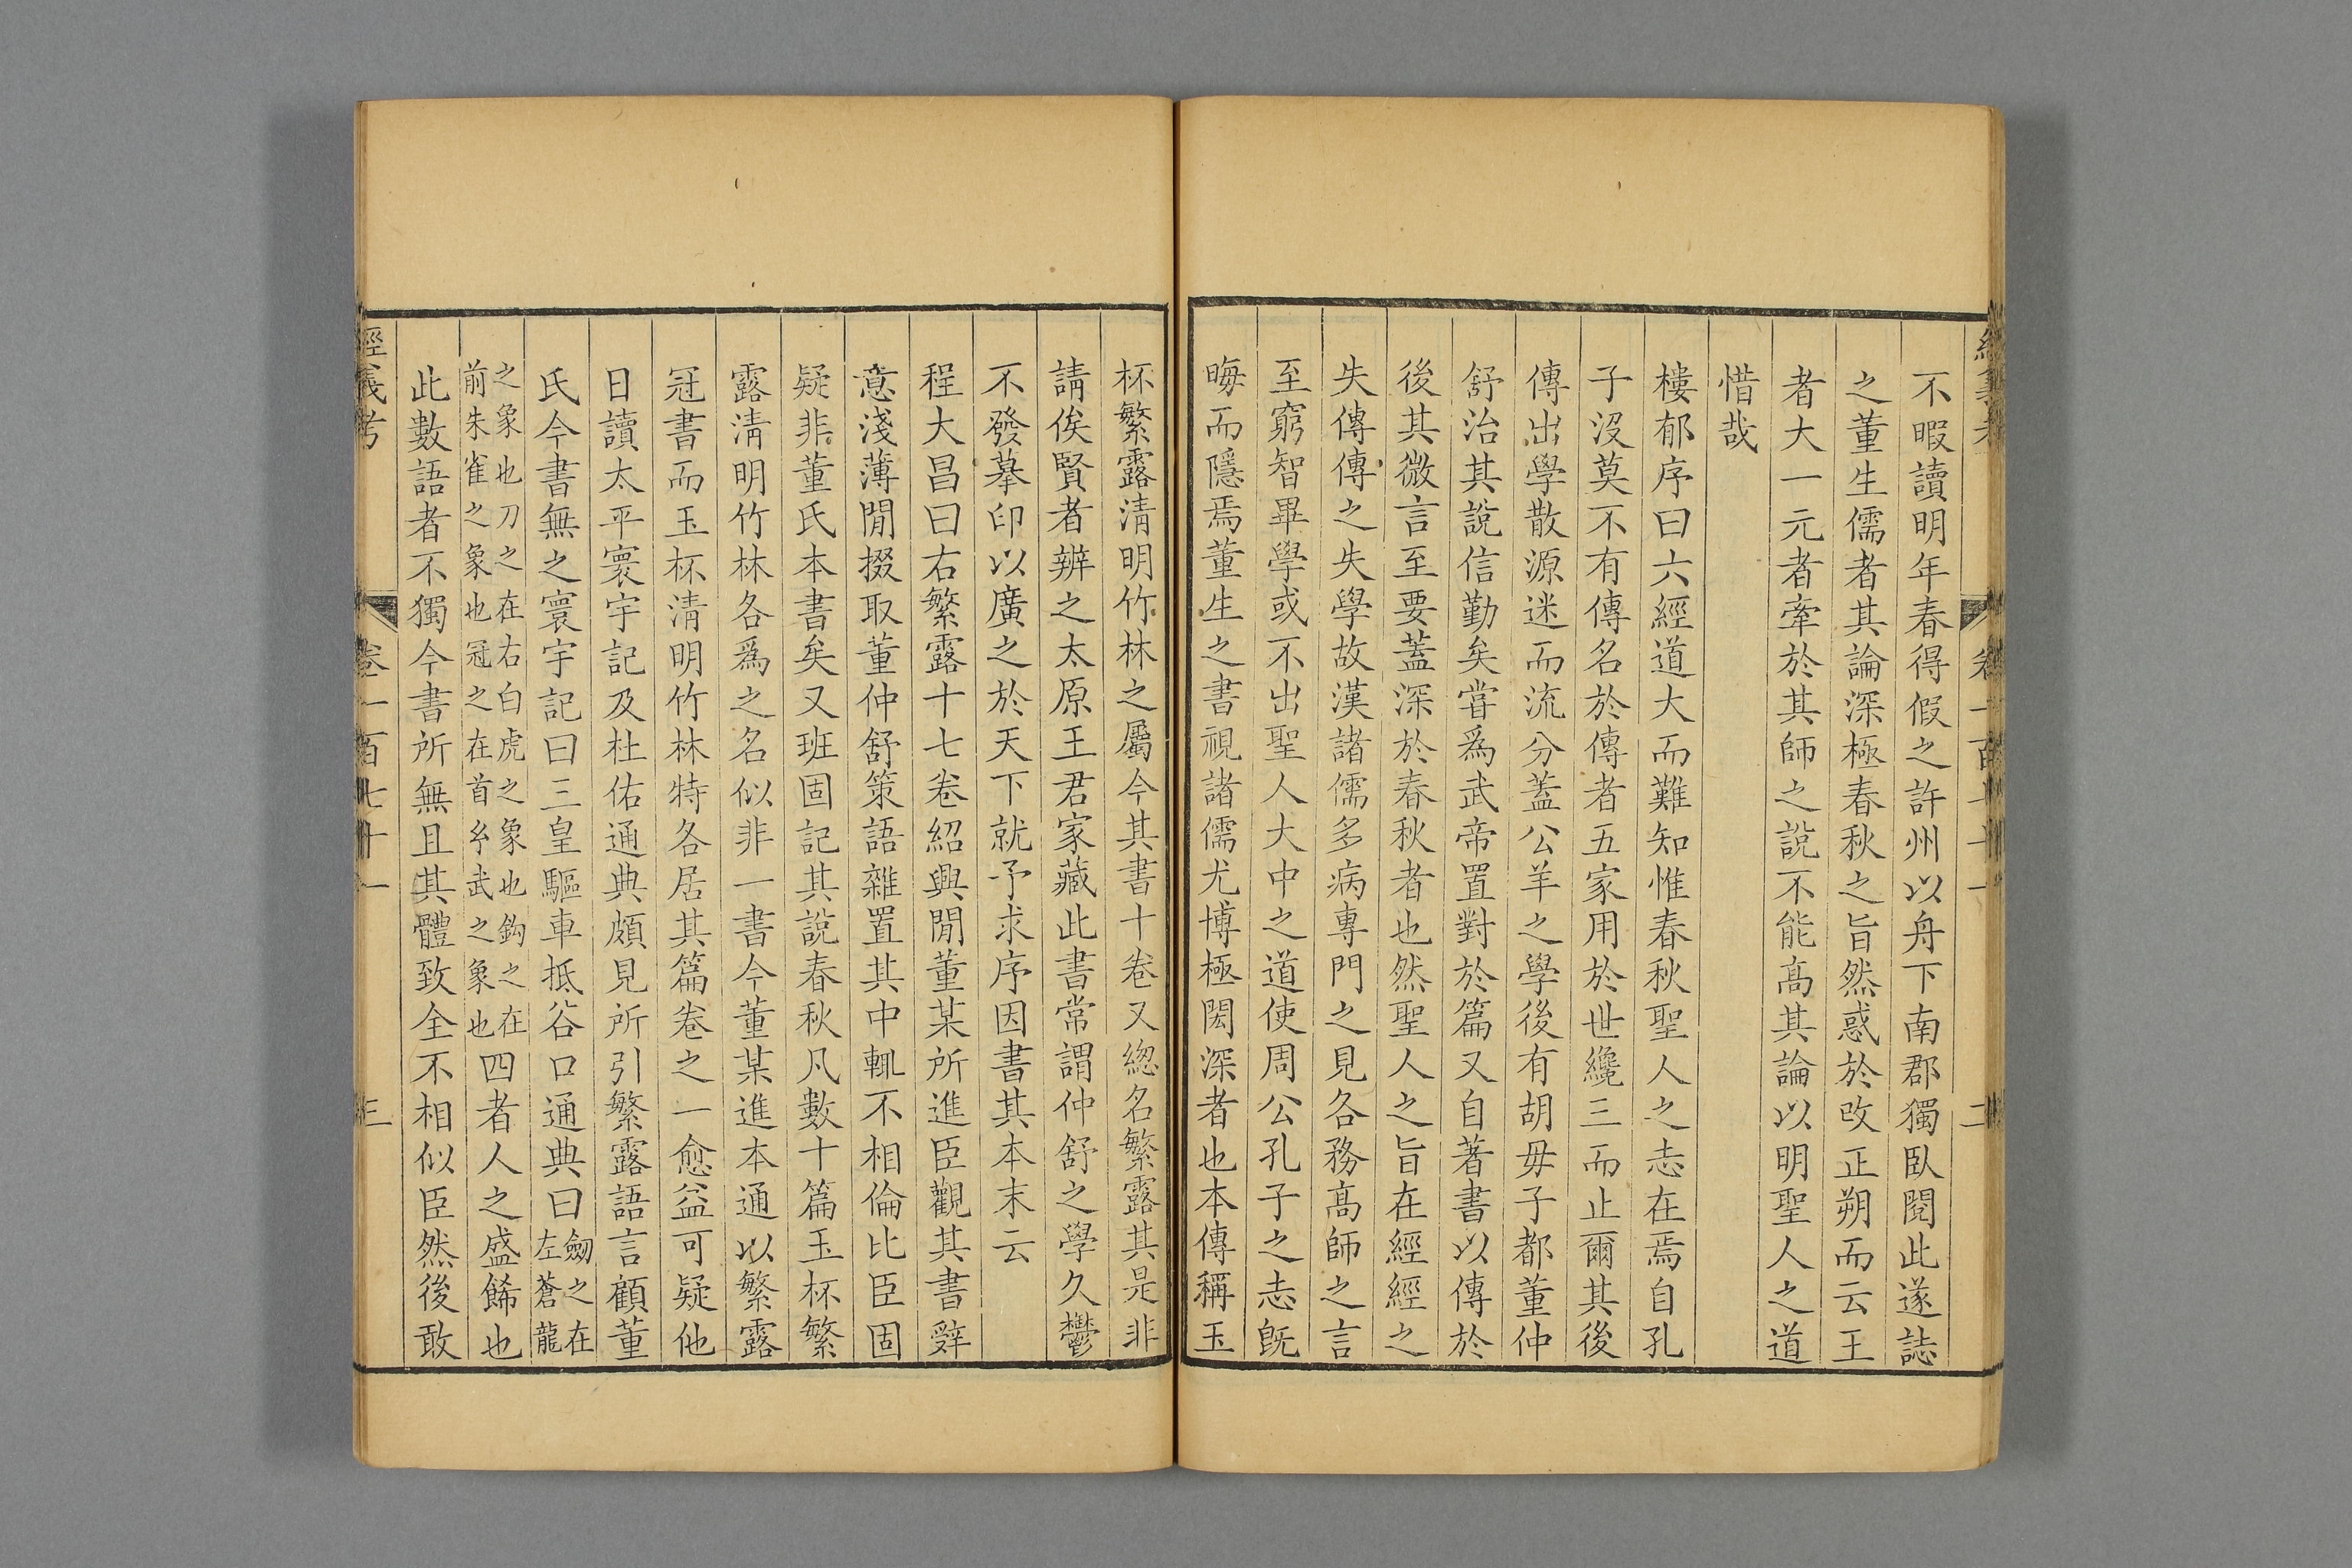 不暇讀明年春得假之許州以舟下南郡獨臥閱此遂誌
之董生儒者其論深極春秋之旨然惑於改正朔而云王
者大一元者牽於其師之說不能高其論以明聖人之道
惜哉
樓郁序曰六經道大而難知惟春秋聖人之志在焉自孔
子沒莫不有傳名於傳者五家用於世纔三而止爾其後
傳出學散源迷而流分蓋公羊之學後有胡毋子都董仲
舒治其說信勤矣嘗爲武帝置對於篇又自著書以傳於
後其微言至要蓋深於春秋者也然聖人之旨在經經之
失傳傳之失學故漢諸儒多病專門之見各務高師之言
至窮智畢學或不出聖人大中之道使周公孔子之志旣
晦而隱焉董生之書視諸儒尤博極閎深者也本傳稱玉
杯繁露清明竹林之屬今其書十卷又總名繁露其是非
請俟賢者辨之太原王君家藏此書常謂仲舒之學久鬱
不發摹印以廣之於天下就予求序因書其本末云
程大昌曰右繁露十七卷紹興閒董某所進臣觀其書辭
意淺薄閒掇取董仲舒策語雜置其中輒不相倫比臣固
疑非董氏本書矣又班固記其說春秋凡數十篇玉杯繁
露清明竹林各爲之名似非一書今董某進本通以繁露
冠書而玉杯清明竹林特各居其篇卷之一愈益可疑他
日讀太平寰宇記及杜佑通典頗見所引繁露語言顧董
氏今書無之寰宇記曰三皇驅車抵谷口通典曰劒之在
左蒼龍
之象也刀之在右白虎之象也鈎之在
前朱雀之象也冠之在首𤣥武之象也四者人之盛餙也
此數語者不獨今書所無且其體致全不相似臣然後敢
經義考
卷一百七十一
三